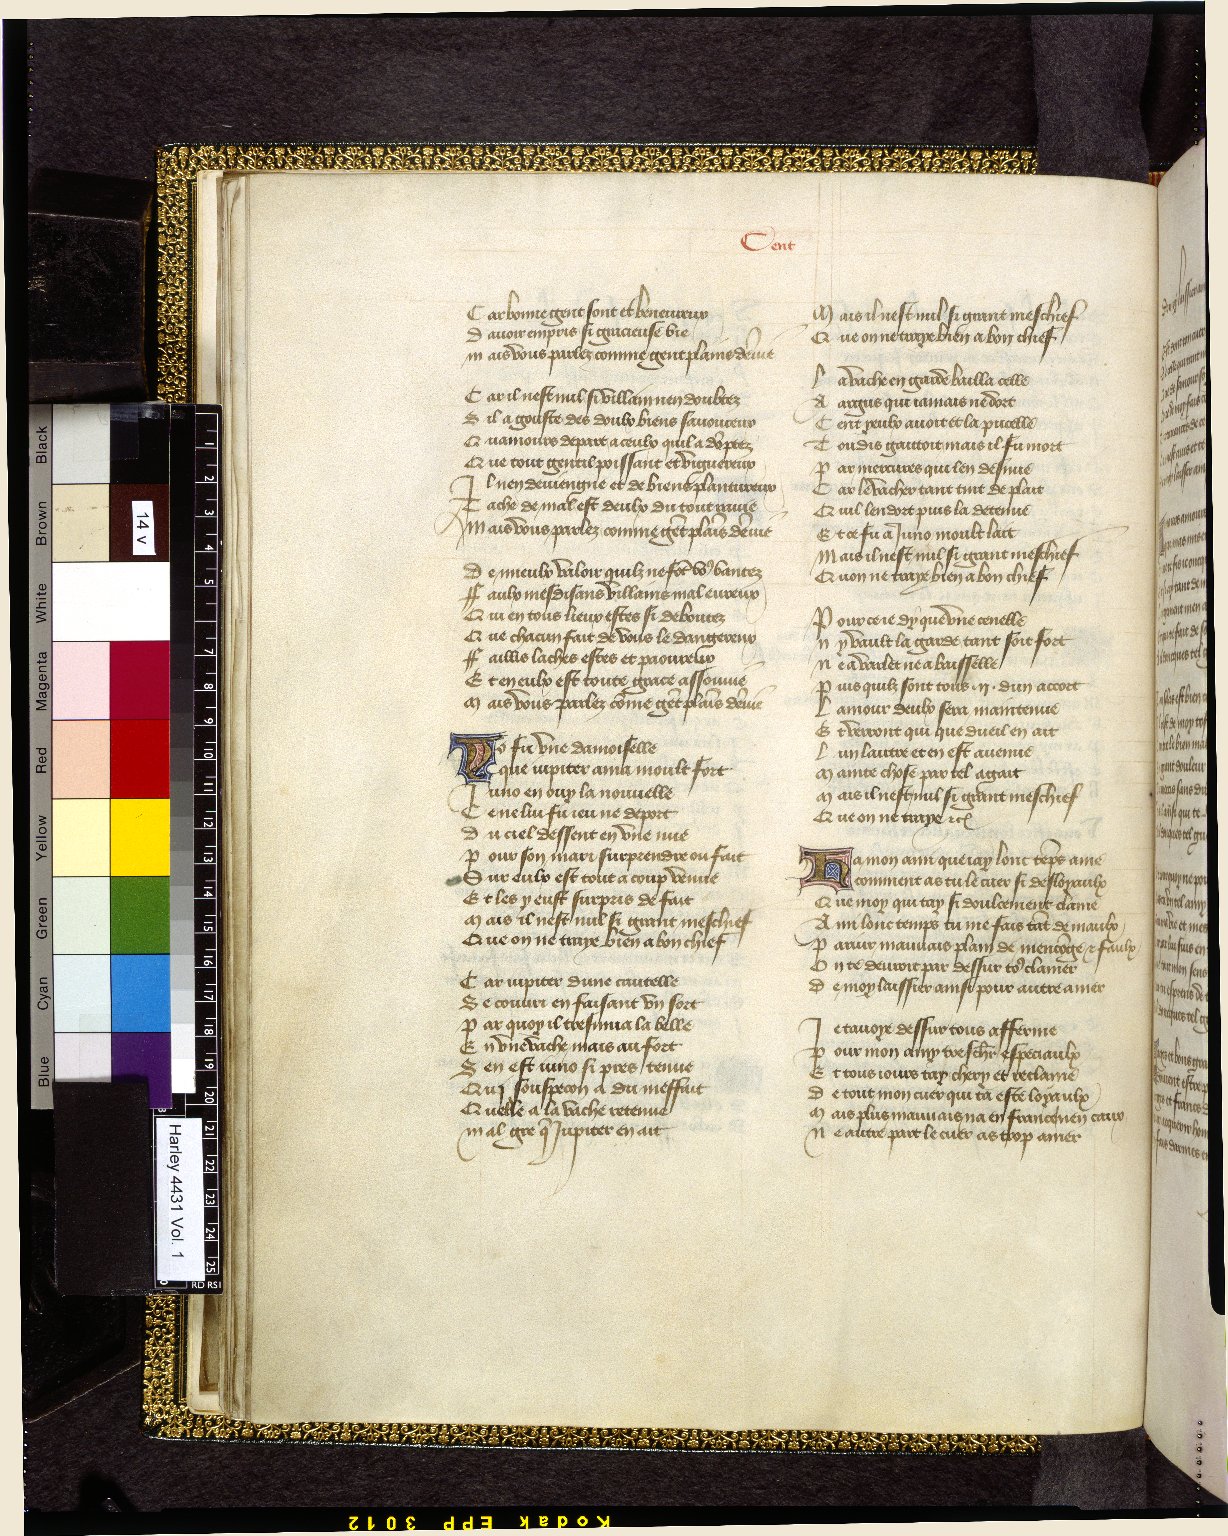 Cent
Car bonne gent sont et beneureux
D avoir empris si gracieuse vie
Mais vous parlez comme gent plains denvie
Car il nest nul si villain nen doubtez
S il a gouste des doulx biens savoureux
Quamours depart a ceulx quil a doptez
Que tout gentil poissant et viguereux
Il nen deviengne et de biens plantureux
Tache de mal est deulx du tout ravie
Mais vous parlez comme gēt plaīs denvie
De mieulx valoir quilz ne font vous vantez
Ffaulx mesdisans villains maleureux
Qui en tous lieux estes si deboutez
Que chacun fait de vous le dangereux
Ffaillis laches estes et paoureux
Et en eulx est toute grace assouvie
Mais vous parlez cōme gēt plaīs denvie
Yo fu une damoiselle
que iupiter ama moult fort
Iuno en ouy la nouvelle
Ce ne lui fu ieu ne deport
Du ciel dessent en une nue
Pour son mari surprendre ou fait
Sur eulx est tout a coup venue
Et les y eust surpris de fait
Mais il nest nul si grant meschief
Que on ne traye bien a bon chief
Car iupiter dune cautelle
Se couvri en faisant un sort
Par quoy il tresmua la belle
En une vache mais au fort
Sen est iuno si pres tenue
Qui souspecon a du meffait
Quelle a la vache retenue
Mal gre q̄ Iupiter en ait
Mais il nest nul si grant meschief
Que on ne traye bien a bon chief
La vache en garde bailla celle
A argus qui iamais ne dort
Cent yeulx avoit et la pucelle
Toudis gaitoit mais il fu mort
Par mercures qui len desnue
Car le vachier tant tint de plait
Quil lendort puis la detenue
Et ce fu a Iuno moult lait
Mais il nest nul si grant meschief
Quon ne traye bien a bon chief
Pour ce ie dy que une cenelle
Ny vault la garde tant soit fort
Ne a varlet ne a baisselle
Puis quilz sont tous .ii. dun accort
Lamour deulx sera maintenue
Et verront qui que dueil en ait
Lun lautre et en est avenue
Mainte chose par tel agait
Mais il nest nul si grant meschief
Que on ne traye &c
Ha mon ami que iay lonc tēps ame
comment as tu le cuer si desloyaulx
Que moy qui tay si doulcement clame
Ami lonc temps tu me fais tāt de maulx
Parur mauvais plain de mencōge & faulx
On te devroit par dessur to9 clamer
De moy laissier ainsi pour autre amer
Ie tavoye dessur tous afferme
Pour mon amy treschr̄ especiaulx
Et tous iours tay chery et reclame
De tout mon cuer qui ta este loyaulx
Mais plus mauvais na en france nen caux
Ne autre part le cuer as trop amer
14 v
Harley 4431 Vol. 1
Black
Brown
White
Magenta
Red
Yellow
Green
Cyan
Blue
Kodak EPP 3012